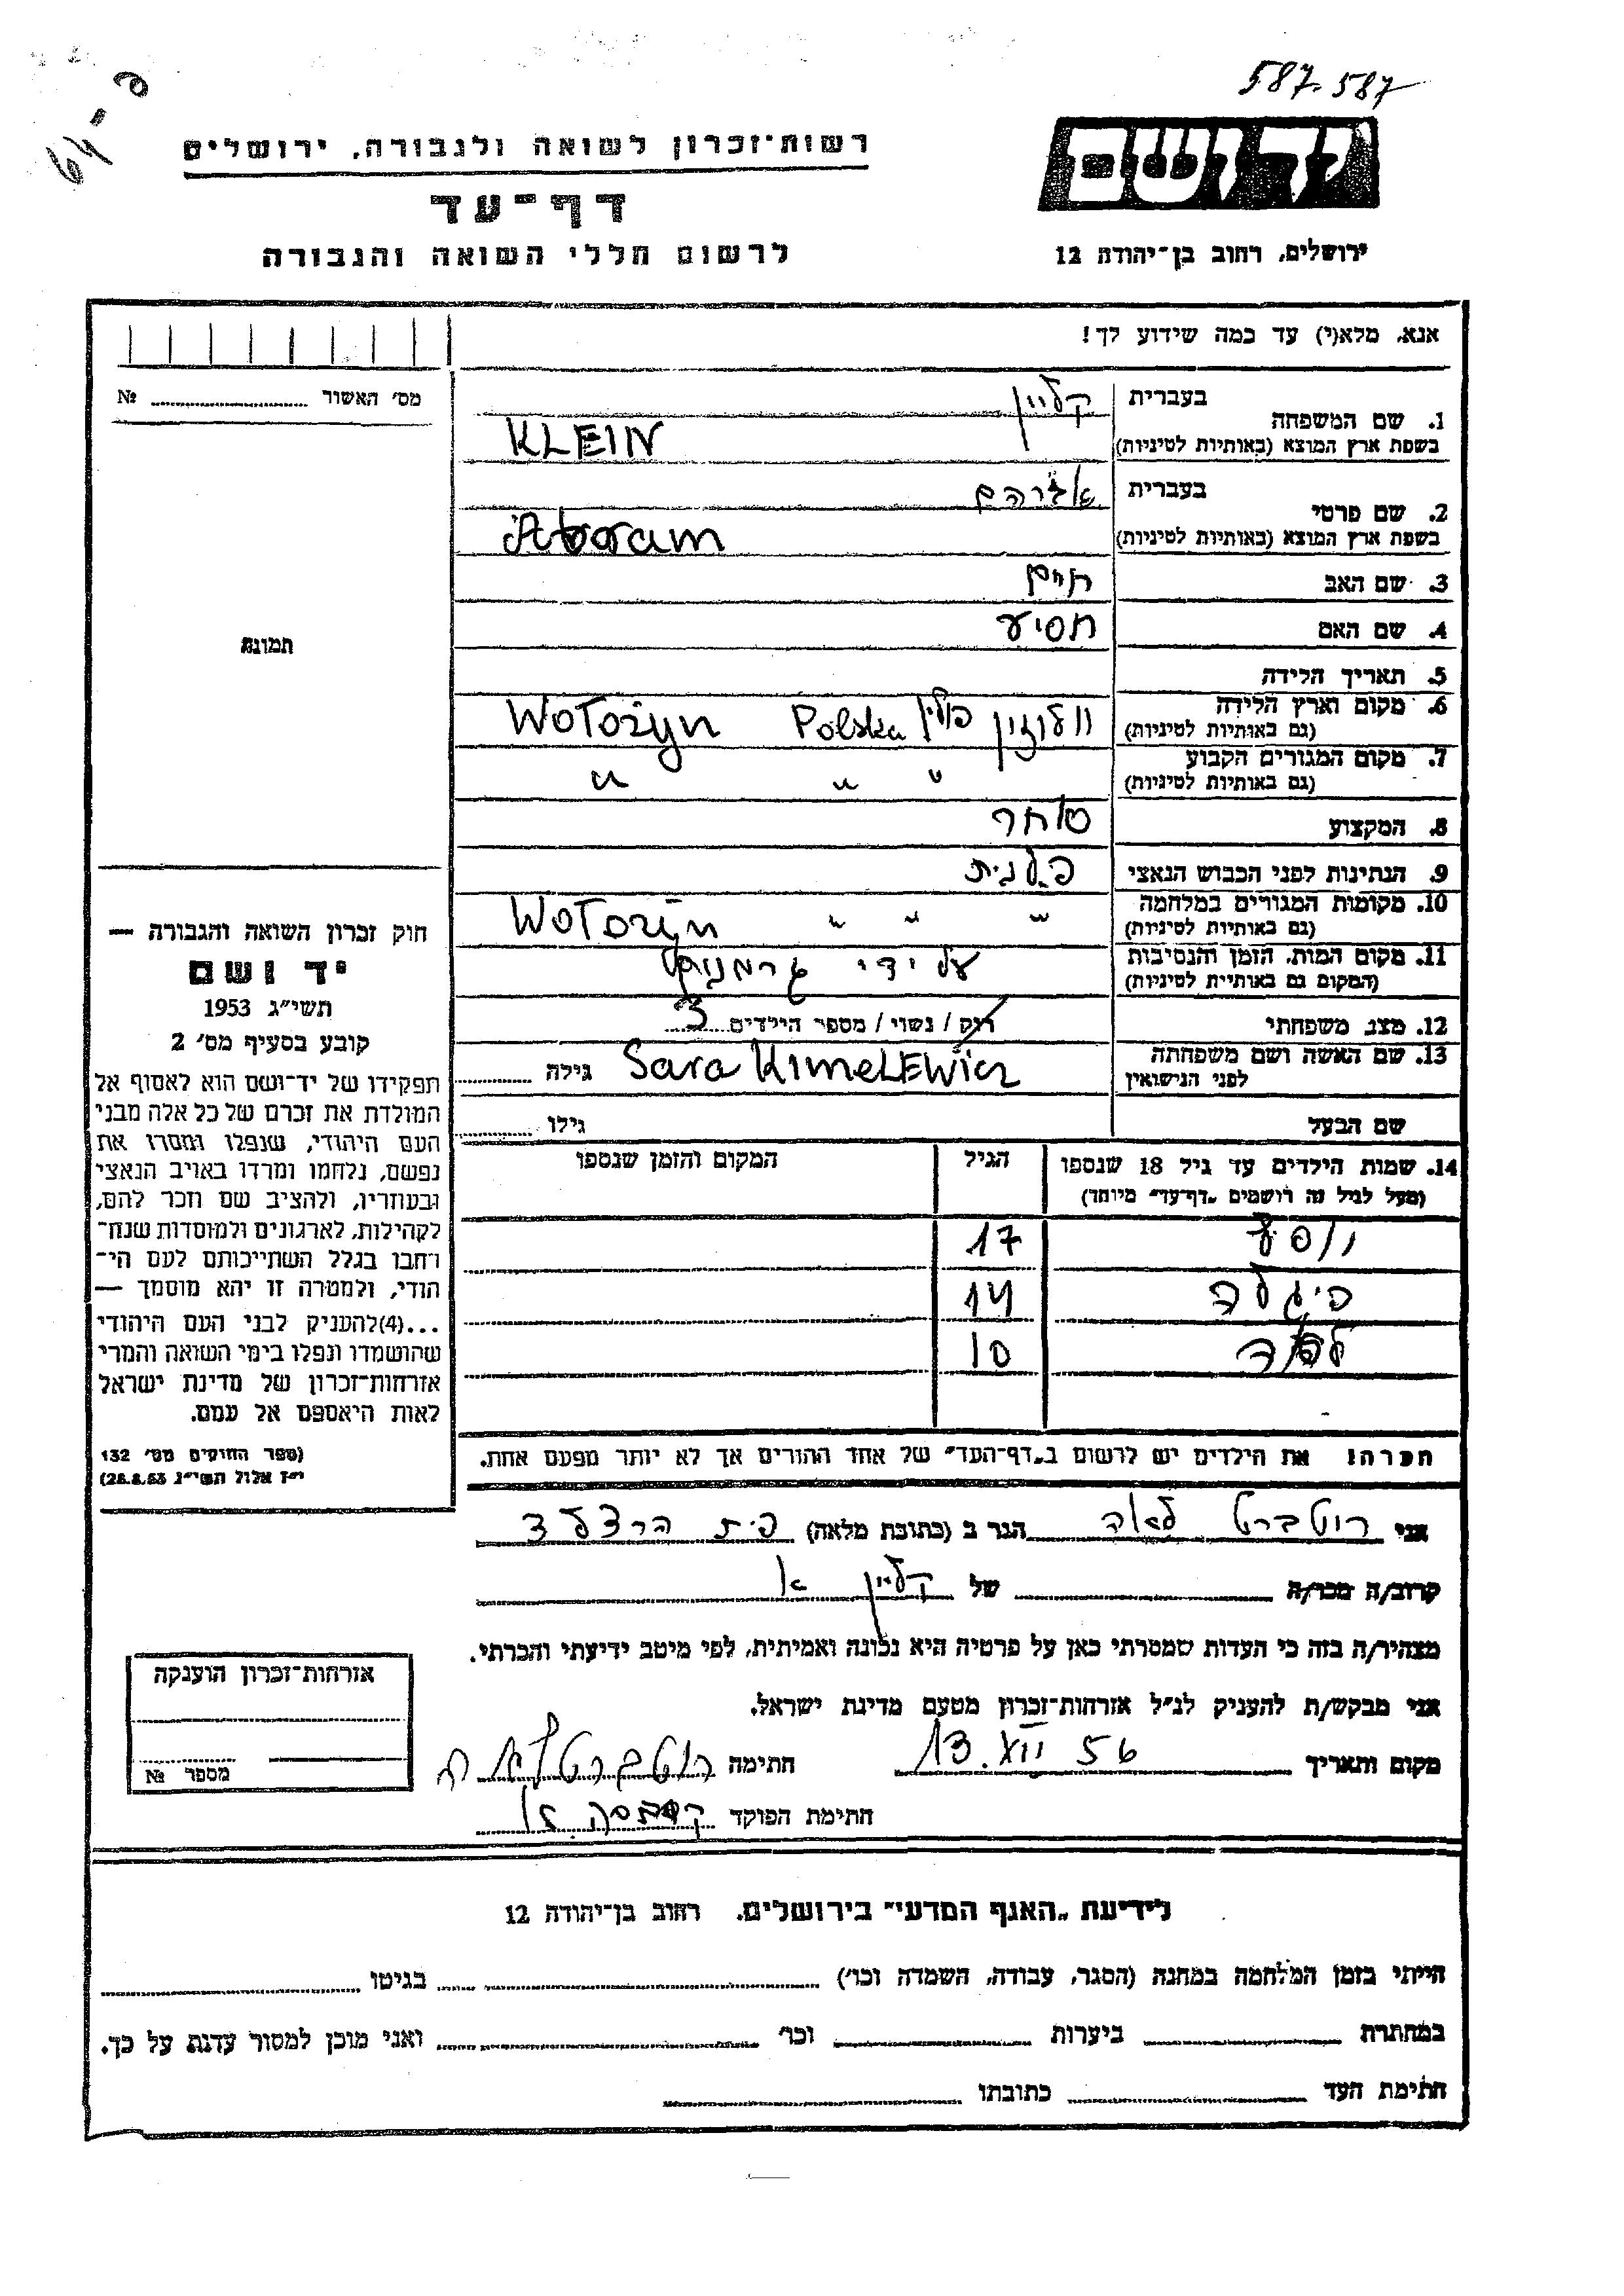 587.587
64-פ
רשות־זכרון לשואה ולגבורה, ירושלים
דף־עד
לרשום חללי השואה והגבורה
יד ושם
ירושלים, רחוב בן־יהודה 12
אנא, מלא(י) עד כמה שידוע לך!
מס׳ האשור № 
1. שם המשפחה בעברית קליין
בשפת ארץ המוצא (באותיות לטיניות) KLEIN
2. שם פרטי בעברית אברהם
בשפת ארץ המוצא (באותיות לטיניות) Abram
3. שם האב חיים
4. שם האם
5. תאריך הלידה
6. מקום וארץ הלידה (גם באותיות לטיניות) וולוזין פולין Polska Wołożyn
7. מקום המגורים הקבוע (גם באותיות לטיניות) " " "
8. המקצוע סוחר
9. הנתינות לפני הכבוש הנאצי
10. מקומות המגורים במלחמה (גם באותיות לטיניות) " " " Wołożyn
11. מקום המות, הזמן והנסיבות (המקום גם באותיית לטיניות) על ידי
12. מצב משפחתי רוק / נשוי / מספר הילדים 3
13. שם האשה ושם משפחתה לפני הנישואין Sara KIMELEWicz גילה
שם הבעל גילו
14. שמות הילדים עד גיל 18 שנספו הגיל המקום והזמן שנספו
(מעל לגיל זה רושמים „דף־עד״ מיוחד)
17
פיגלה 14
10
תמונה
חוק זכרון השואה והגבורה —
יד ושם
תשי״ג 1953
קובע בסעיף מס׳ 2
תפקידו של יד־ושם הוא לאסוף אל
המולדת את זכרם של כל אלה מבני
העם היהודי, שנפלו ומסרו את
נפשם, נלחמו ומרדו באויב הנאצי
ובעוזריו, ולהציב שם וזכר להם,
לקהילות, לארגונים ולמוסדות שנח־
רבו בגלל השתייכותם לעם הי־
הודי, ולמטרה זו יהא מוסמך —
...(4)להעניק לבני העם היהודי
שהושמדו ונפלו בימי השואה והמרי
אזרחות־זכרון של מדינת ישראל
לאות היאספם אל עמם.
(ספר החוקים מס׳ 132
י״ז אלול תשי״ג 28.8.53)
הערה! את הילדים יש לרשום ב„דף־העד״ של אחד ההורים אך לא יותר מפעם אחת.
אני רוטברט לאה הגר ב (כתובת מלאה)
קרוב/ה מכר/ה של קליין א
מצהיר/ה בזה כי העדות שמסרתי כאן על פרטיה היא נכונה ואמיתית, לפי מיטב ידיעתי והכרתי.
אני מבקש/ת להעניק לנ״ל אזרחות־זכרון מטעם מדינת ישראל.
מקום ותאריך 13.XII 56 חתימה רוטברט לאה
חתימת הפוקד
אזרחות־זכרון הוענקה
מספר №
לידיעת „האגף המדעי״ בירושלים. רחוב בן־יהודה 12
הייתי בזמן המלחמה במחנה (הסגר, עבודה, השמדה וכו׳) בגיטו
במחתרת ביערות וכו׳ ואני מוכן למסור עדות על כך.
חתימת העד כתובתו